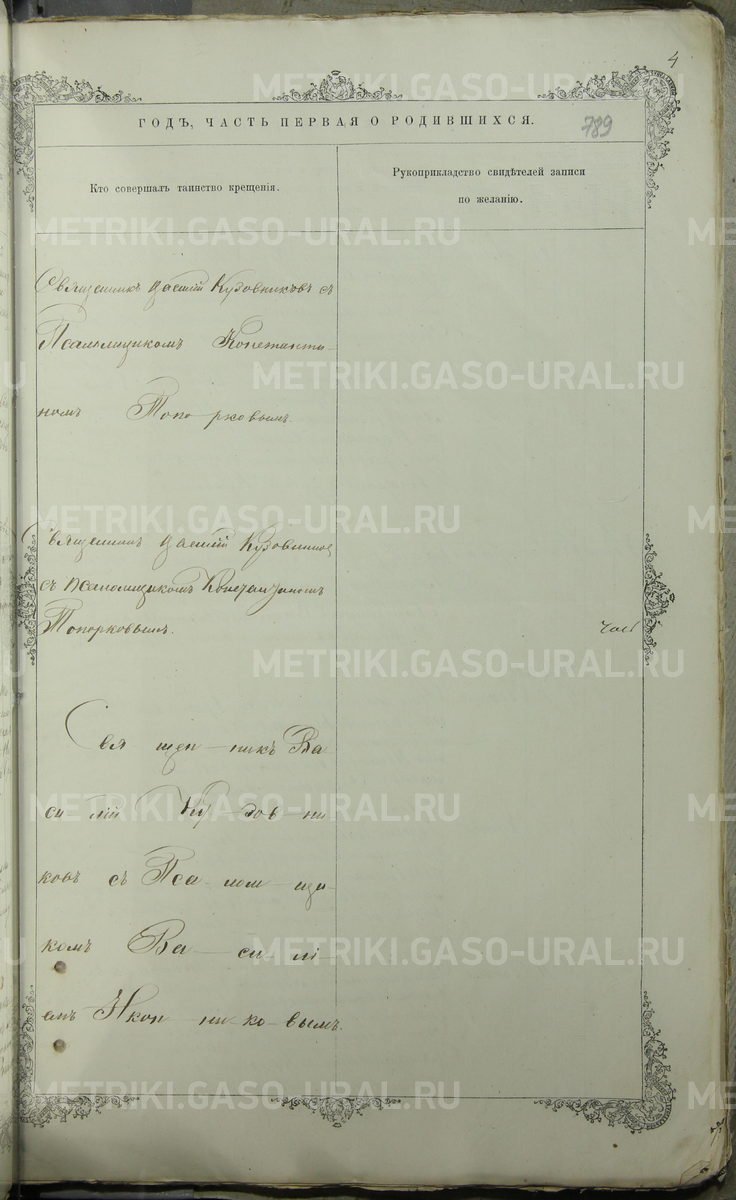 4
ГОДЪ, ЧАСТЬ ПЕРВАЯ О РОДИВШИХСЯ.
789
Кто совершалъ таинство крещенія.
Рукоприкладство свидѣтелей записи
по желанію.
Священникъ Василій Кудовниковъ съ
Псаломщикомъ Константи-
номъ Топорковымъ.
Священникъ Василій
съ Псаломщикомъ Константиномъ
Топорковымъ.
Свя щен-никъ Ва
си лій Ку-дов-ни
ковъ съ Пса-лом-щи-
комъ Ва-си-лі-
емъ Икон-ни-ко-вымъ.
METRIKI.GASO-URAL.RU